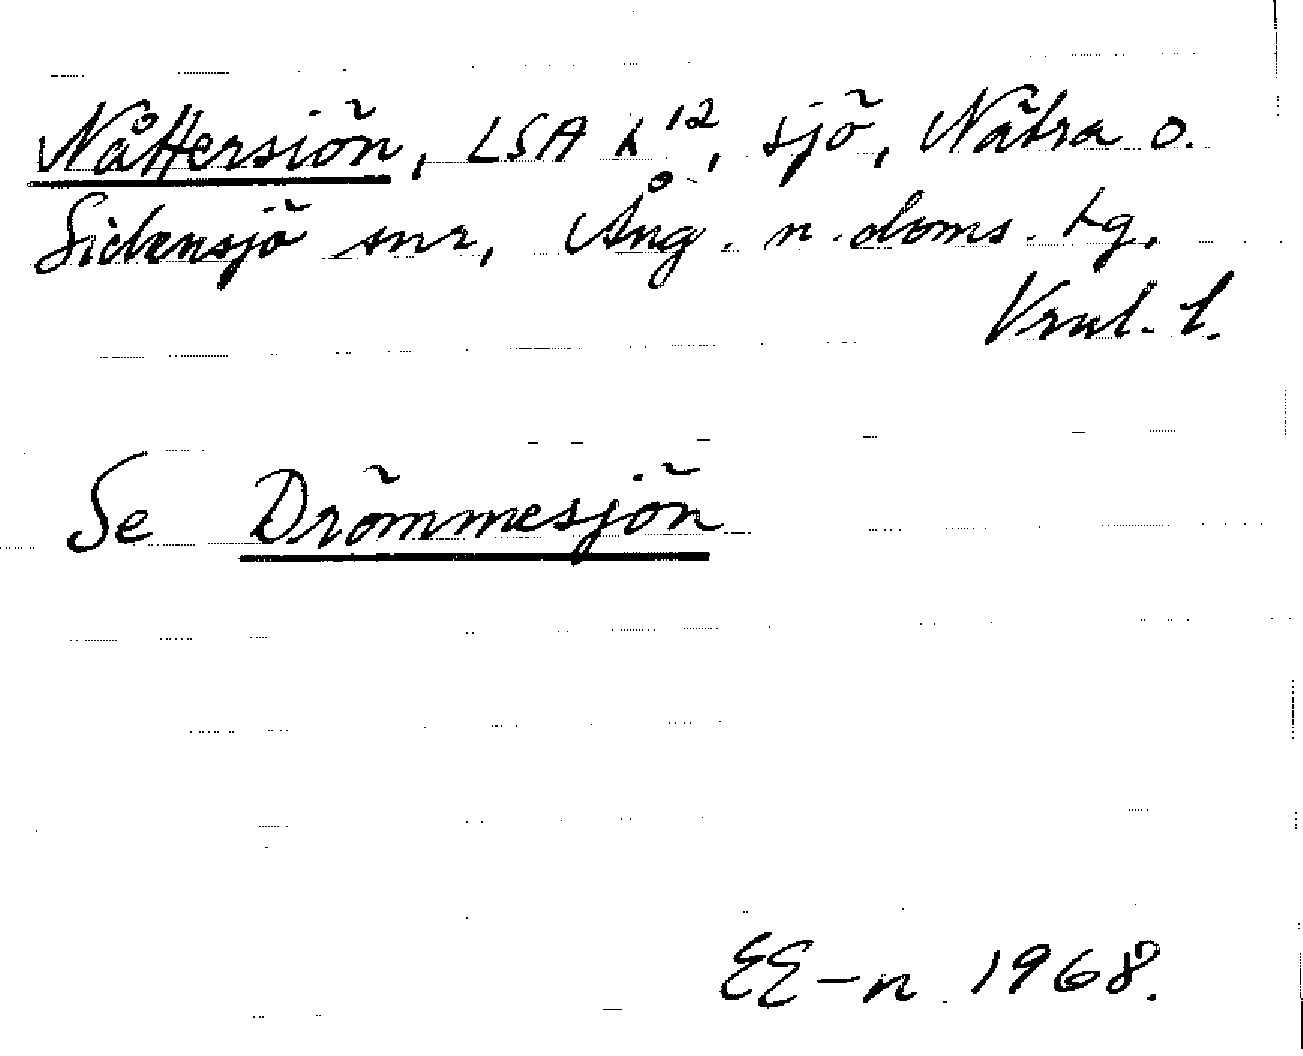 Nåttersiön, LSA k¹², sjö, Nätra o.
Sidensjö snr, Ång. n. doms. tg,
Vrnl. l.
Se Drömmesjön
EE-n 1968.